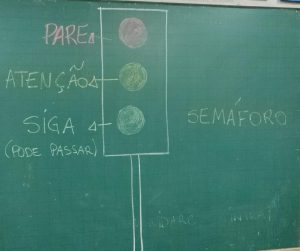 PARE
ATENÇÃO
SIGA
(PODE PASSAR)
SEMÁFORO